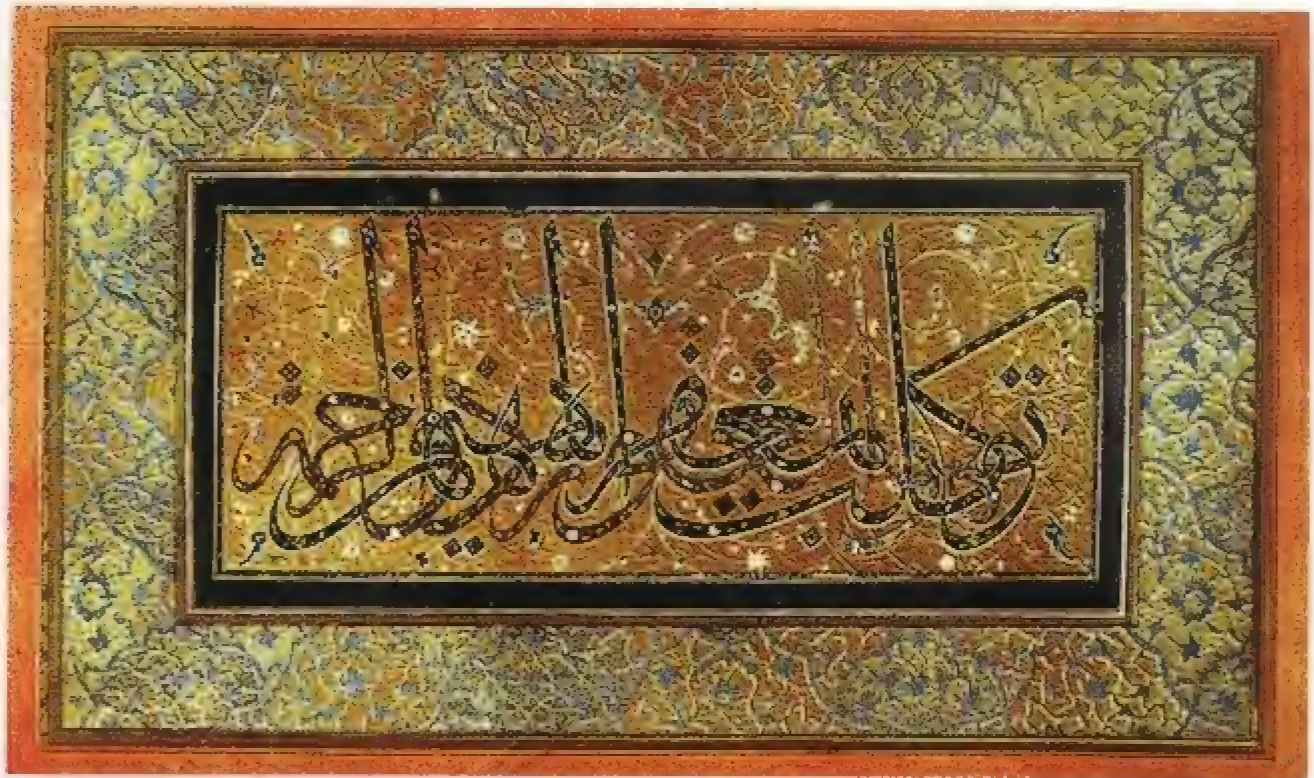 توكلت بمغفرة المهيمن هو الغفور ذو الرحمة